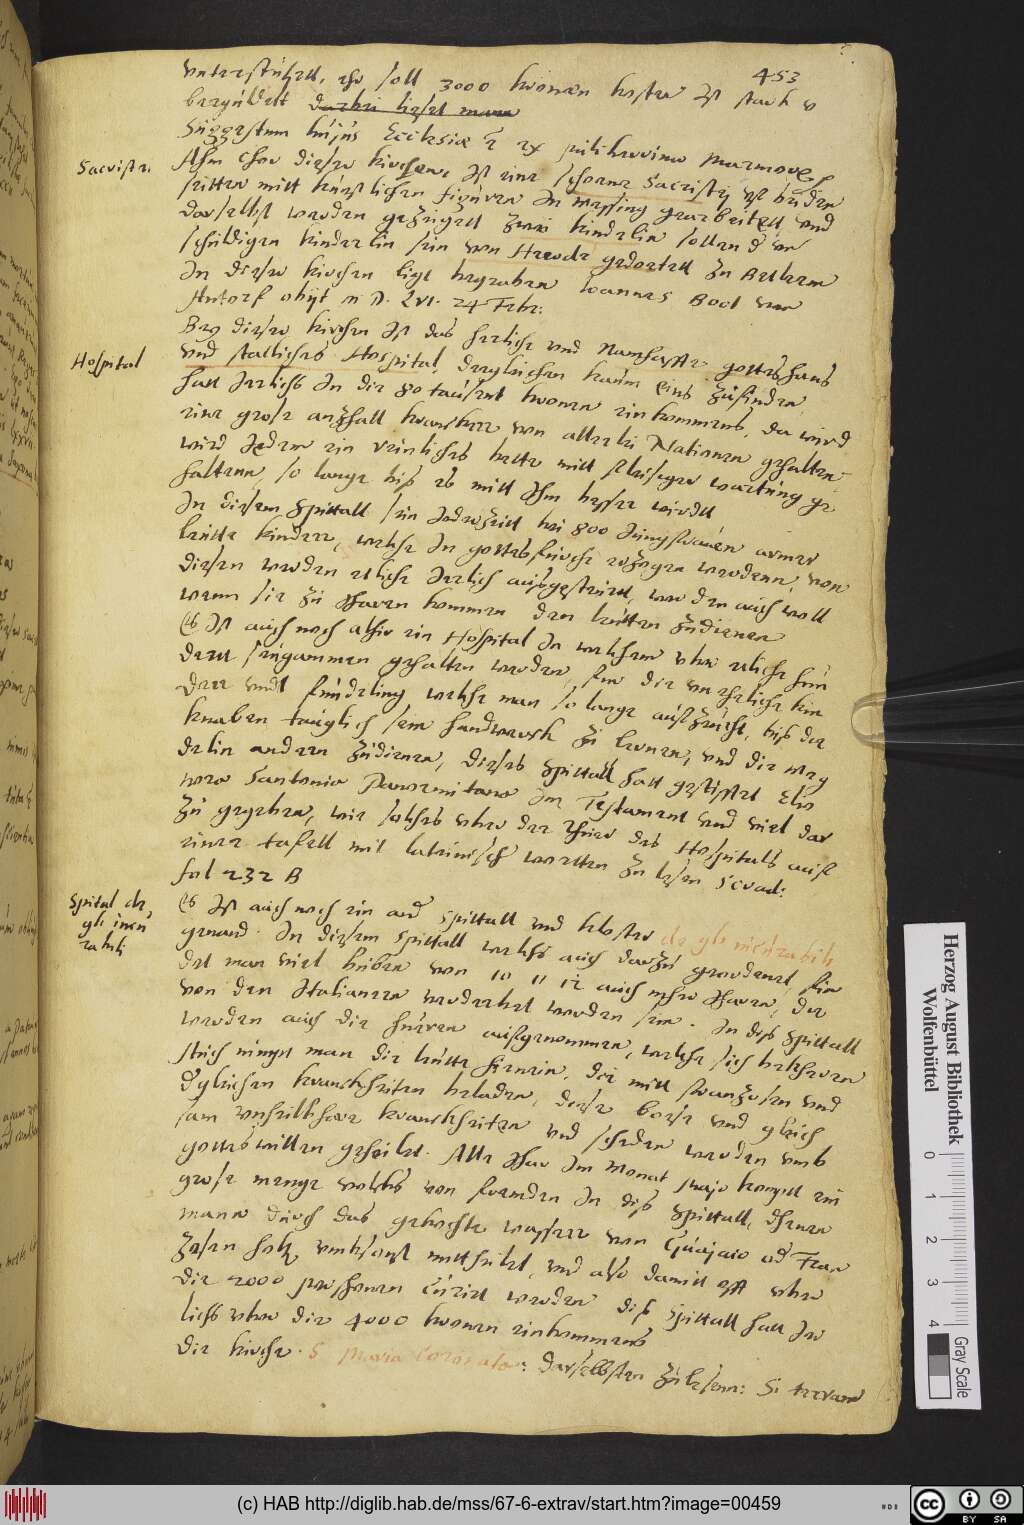 453
unterstützett, ehr soll 3000 kronen kosten Ist starck v
bergüldett darbei lieset mann
Suggestum hujus Ecclesiæ ẽ ex pulcherrimo marmore
Sacristi.
Ahm Chor dieser kirchenn Ist eine schoene Sacristej Ist beiden
seitten mitt künstlichen figuren In messing gearbeitett und
darselbst werden gezeigett zwei kinderlin sollen d un
schuldigen kinderlin sein von Herode gedoetett zu Betleem
In dieser kirchen ligt begraben Ioannes Bool von
Antorf obijt M D. LVI. 24 Febr:
Hospital
Bey dieser kirchen Ist das herliche und Namhaffte gotteshaus
und statliches Hospital, dergleichen kaum eins zufinden,
hatt Ierlichs In die 80 tausent kronen einkommens, da wird
eine grose anzhall krancker von allerlei Nationen gehalten
wird Iedem ein reinliches bette mitt fleisiger wartung ge
haltenn, so lange biß es mitt Ihm besser wirdtt
In diesem Spittall sein Iederzeitt bei 800 Iungfrawen armer
leutte kinder, welche In gottesfurcht erzogen werdenn, von
diesen werden etliche Ierlich ausgesteurtt, wer den auch woll
wenn sie zu Iharen kommen den leutten zudienen
Es Ist auch noch alhir ein Hospital In welchem uber etliche hun
dertt seugammen gehalten werden, fur die unehrliche kin
der undt fündeling welche man so lange aufzeucht, biß die
knaben tauglich sein handwerck zu lernen, und die meg
delin andern zudienen, dieses Spittall hatt gestifftet Cho
mero Santonio Panormitano Im Testament und viel dar
zu gegeben, wie solches uber der thuer des Hospitals auff
einer tafell mit lateinisch worten zu lesen Scrad:
fol 232 B
Spital de
gli incu
rabili
Es Ist auch noch ein and Spittall und kloster de gli incurabili
genand. In diesem Spittall welchs auch darzu geordenet, fin
det man viel buben von 10 11 12 auch mehr Iharen, die
von den Italianern verderbet worden sein. In diß Spittall
werden auch die huren aufgenommen, welche sich bekheren
Auch nimpt man die leutte hienein, die mitt frantzosen und
dgleichen kranckheiten beladen, diese boese und gleich
sam unheilbare kranckheiten und scheden werden umb
gotteswillen geheilet. Alle Ihar Im Monat Majo kompt ein
grose menge volcks von frembden In diß Spittall, denen
mann durch das gekochte wasser von Guajaio od Fran
zosen holtz umbsonst mitthielet, und also damitt offt uber
die 2000 personen curirt werden diß Spittall hatt Ier
lichs uber die 4000 kronen einkommens
Die kirche. S Maria Coronato: darselbsten zulesenn: Si terrarum
Herzog August Bibliothek
Wolfenbüttel
0 1 2 3 4
Gray Scale
(c) HAB http://diglib.hab.de/mss/67-6-extrav/start.htm?image=00459
cc BY SA